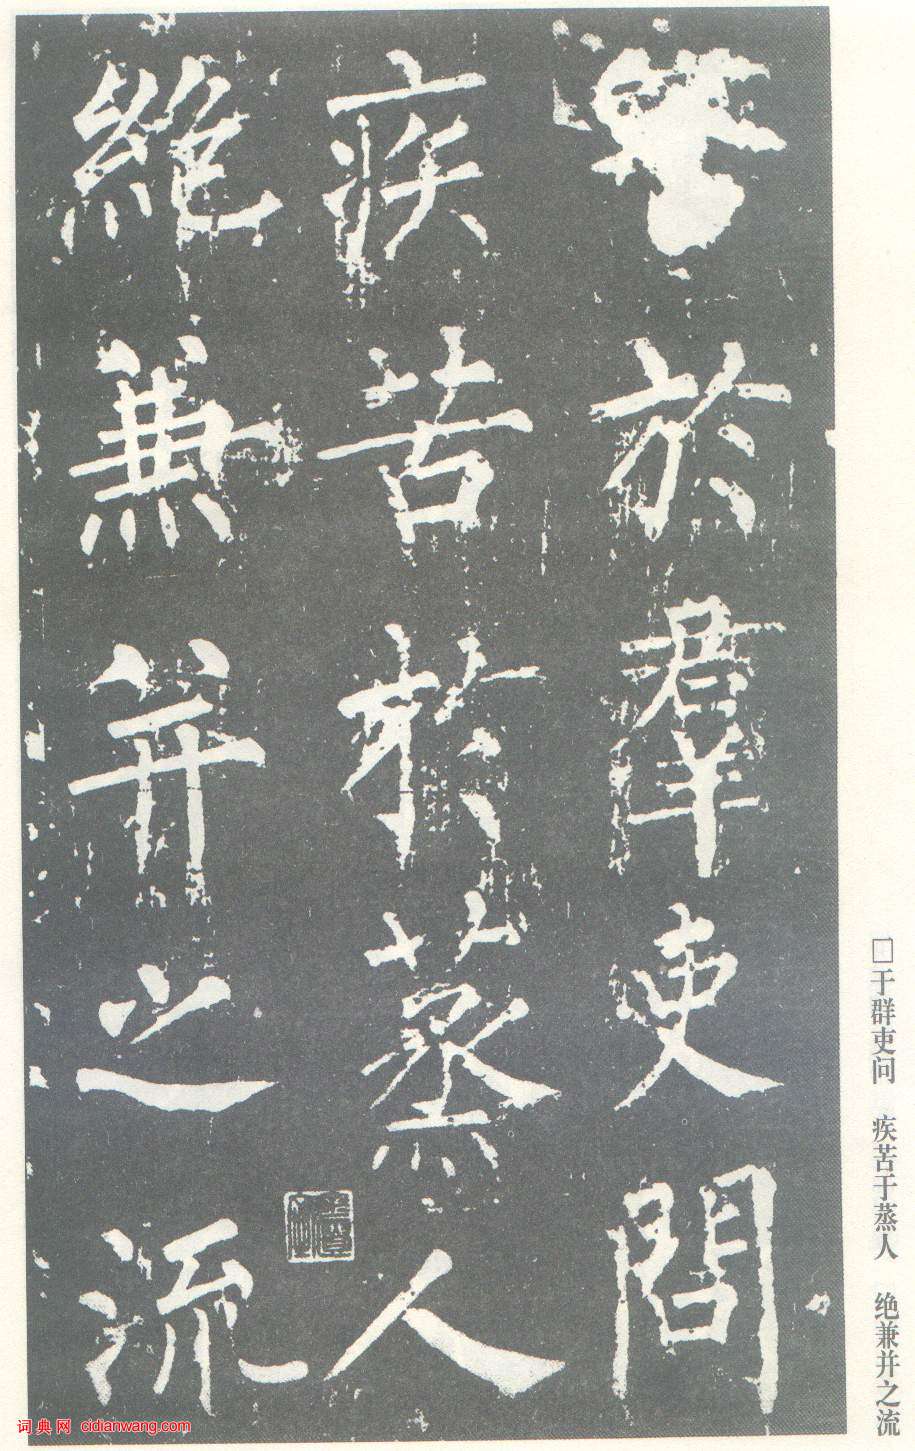 於羣吏問
疾苦於蒸人
絶兼并之流
□于群吏问 疾苦于蒸人 绝兼并之流
词典网 cidianwang.com